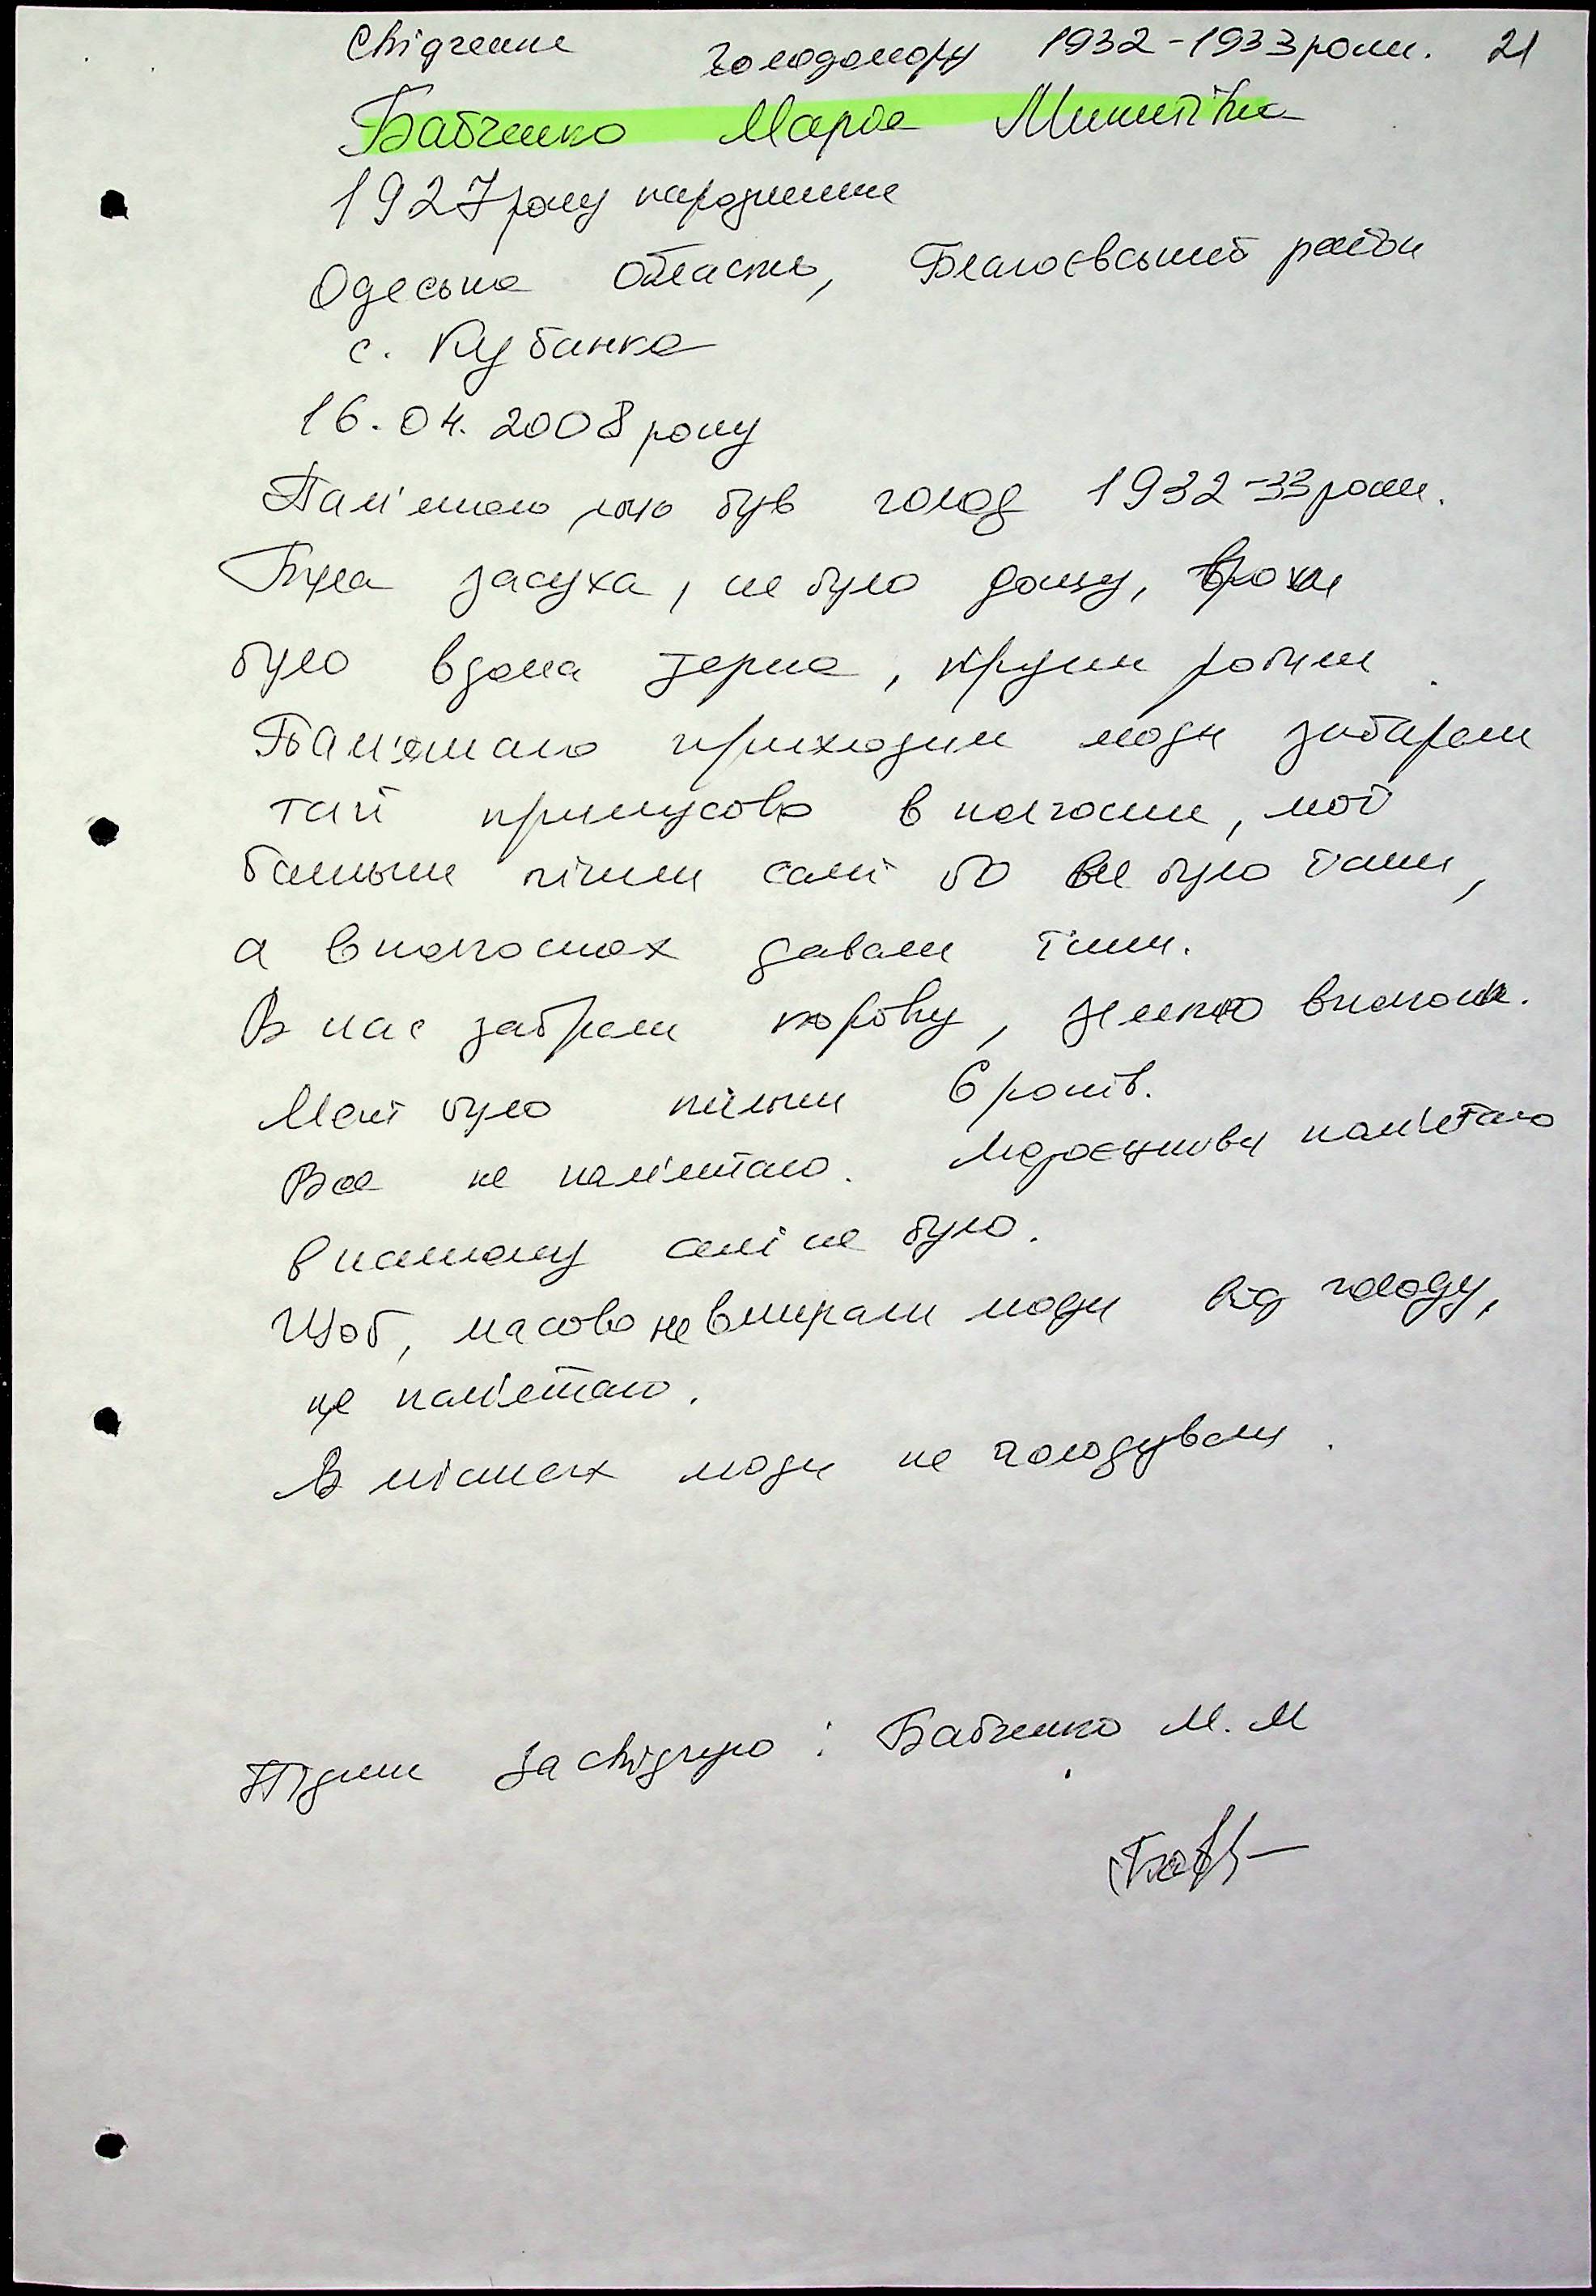 Свідчення голодомору 1932-1933 роки. 21
Бабченко Марія Микитівна
1927 року народження
Одеська область, Благоєвський район
с. Кубанка
16.04.2008 року
Пам'ятаю, що був голод 1932-33 роки.
Була засуха, не було дощу, трохи
було вдома зерна, крупи робили.
Пам'ятаю приходили люди забирали
такі примусово в колгосп, мої
батьки пішли самі бо не було їжи,
а в колгоспах давали їжи.
В нас забрали корову, землю в колгосп.
Мені було тільки 6 років.
Все не пам'ятаю. Людоєдникову пам'ятаю
в нашому селі не було.
Щоб, масово не вмирали люди від голоду,
це пам'ятаю.
В містах люди не голодували.
Підпис за свідчую: Бабченко М.М